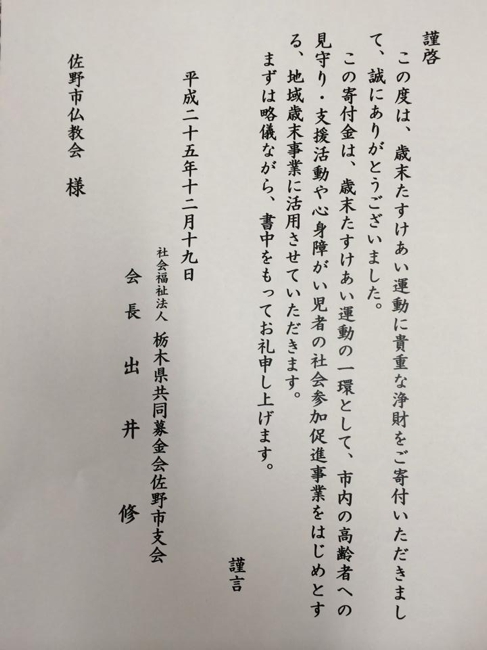 謹啓
この度は、歳末たすけあい運動に貴重な浄財をご寄付いただきまし
て、誠にありがとうございました。
この寄付金は、歳末たすけあい運動の一環として、市内の高齢者への
見守り・支援活動や心身障がい児者の社会参加促進事業をはじめとす
る、地域歳末事業に活用させていただきます。
まずは略儀ながら、書中をもってお礼申し上げます。
謹言
平成二十五年十二月十九日
社会福祉法人 栃木県共同募金会佐野市支会
会長 出井 修
佐野市仏教会 様